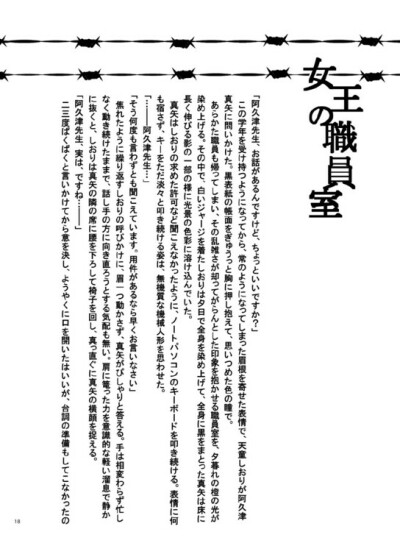 女王の職員室
「阿久津先生、お話があるんですけど、ちょっといいですか?」
この学年を受け持つようになってから、常のようになってしまった眉根を寄せた表情で、天童しおりが阿久津
真矢に問いかけた。黒表紙の帳面をぎゅうっと胸に押し抱えて、思いつめた色の瞳で。
あらかた職員も帰ってしまい、その乱雑さが却ってがらんとした印象を抱かせる職員室を、夕暮れの橙の光が
染め上げる。その中で、白いジャージを着たしおりは夕日で全身を染め上げて、全身に黒をまとった真矢は床に
長く伸びる影の一部の様に光景の色彩に溶け込んでいた。
真矢はしおりの求めた許可など聞こえなかったように、ノートパソコンのキーボードを叩き続ける。表情に何
も宿さず、キーをただ淡々と叩き続ける姿は、無機質な機械人形を思わせた。
「………阿久津先生…」
「そう何度も言わずとも聞こえています。用件があるなら早くお言いなさい」
焦れたように繰り返すしおりの呼びかけに、眉一つ動かさず、真矢がぴしゃりと答える。手は相変わらず忙し
なく動き続けたままで、話し手の方に向き直ろうとする気配も無い。肩に篭った力を意識的な軽い溜息で静か
に抜くと、しおりは真矢の隣の席に腰を下ろして椅子を回し、真っ直ぐに真矢の横顔を捉える。
「阿久津先生、実は、ですね………」
二三度ぱくぱくと言いかけてから意を決し、ようやくに口を開いたはいいが、台詞の準備もしてこなかったの
18